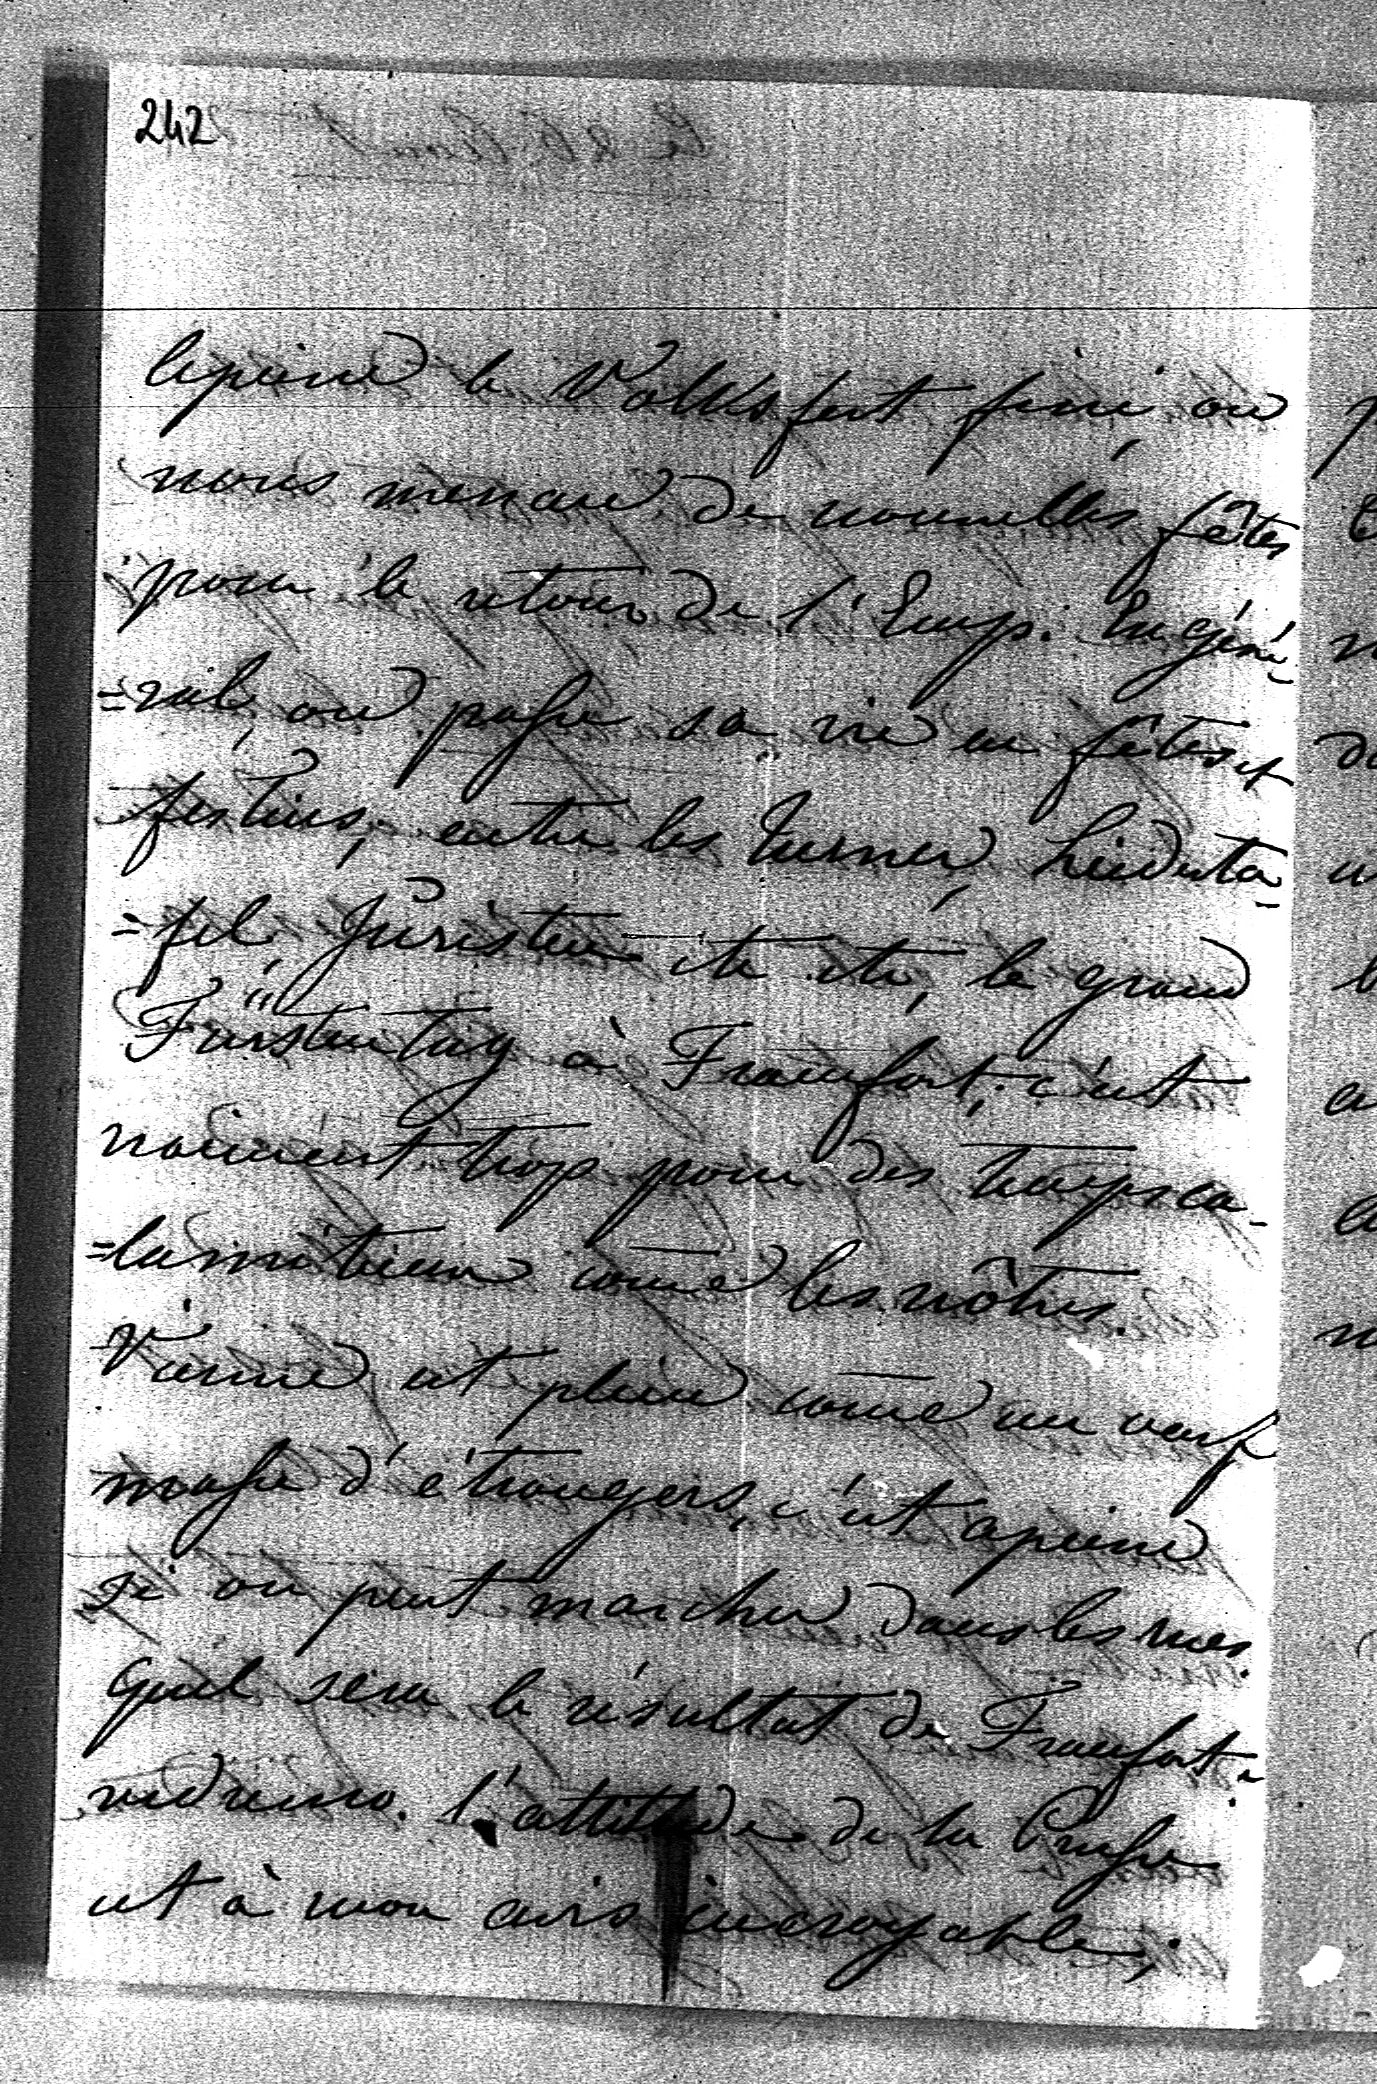 242
apeine le Volksfest fini, on
nous menace de nouvelles fêtes
pour le retour de l'Emp. En géné-
=ral, on passe sa vie en fêtes et
festins, entre les Turner, Liederta-
=fel, Juristen etc etc, le grand
Fürstentag à Francfort, c'est
vraiment trop pour des temps ca-
=lamiteux come les nôtres.
Vienne est pleine come un oeuf
masse d'étrangers, c'est apeine
si on peut marcher dans les rues.
Quel sera le résultat de Francfort.
vedremo. l'attitude de la Prusse
est à mon avis incroyable,